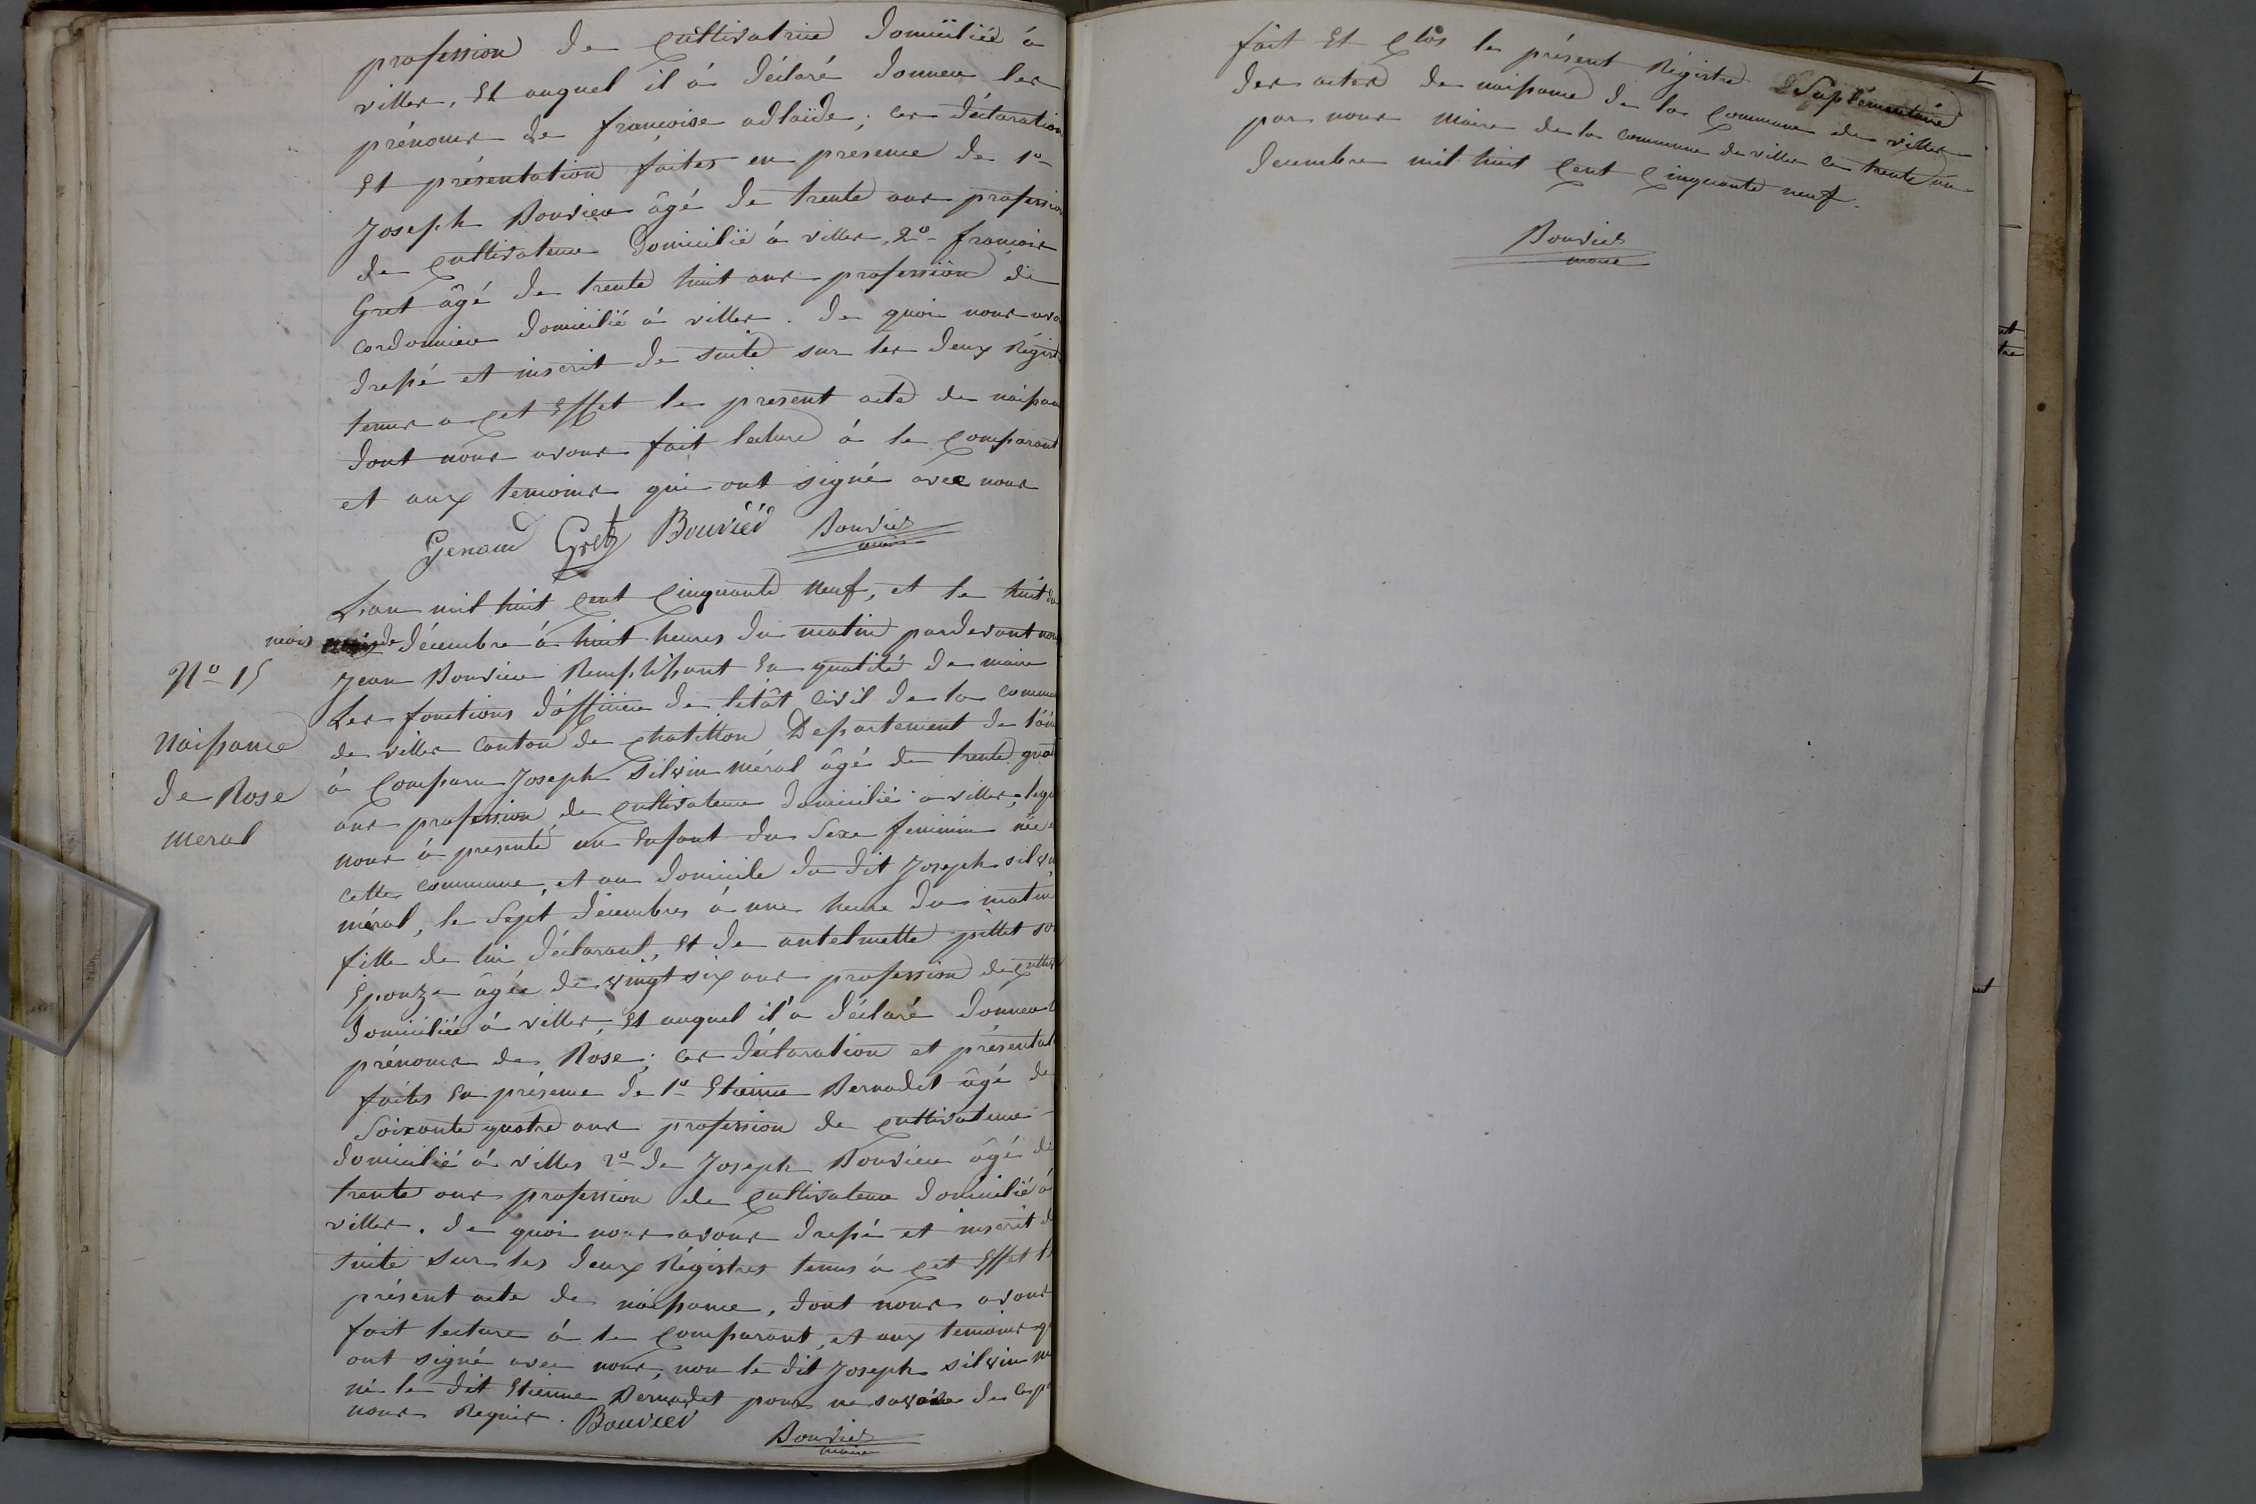 profession de cultivatrice domiciliée à
villes, Et auquel il à déclaré donner les
prénoms de françoise adlaïde; ces déclaration
Et présentation faites en presence de 1º
Joseph Bouvier âgé de trente ans profession
de cultivateur domicilié à villes, 2º françois
Gret âgé de trente huit ans profession de
cordonnier domicilié à villes. de quoi nous avo
dressé et inscrit de suite sur les deux Régist
tenus a cet Effet le present acte de naissan
dont nous avons fait lecture à le comparant
et aux temoins qui ont signé avec nous
Genoud Gret Bouvier Bouvier
maire
L'an mil huit cent cinquante neuf, et le huit du
mois de décembre à huit heures du matin pardevant nou
Nº 15
Naissance
de Rose
meral
Jean Bouvier Remplissant En qualité de maire
Les fonctions d'officier de l'étât civil de la commu
de villes canton de chatillon Departement de l'ain
à comparu Joseph silvin méral âgé de trente quat
ans profession de cultivateur domicilié a villes, lequ
nous à presenté un Enfant du Sexe feminin née
cette commune, et au domicile du dit Joseph silvin
méral, le Sept décembres à une heure du matin
fille de lui déclarant, Et de antelmette pillet so
Epouze âgée de vingt six ans profession de cultiv
domiciliée à villes, Et auquel il a déclaré donner
prénoms de Rose; ces déclaration et présentat
faites En présence de 1º Etienne Bernadet âgé de
Soixante quatre ans profession de cultivateur
domicilié à villes 2º de Joseph Bouvier âgé de
trente ans profession de cultivateur domicilié à
villes. de quoi nous avons dressé et inscrit d
suite sur les deux Régistres tenus à cet Effet le
présent acte de naissance, dont nous avons
fait lecture à le comparant, et aux temoins q
ont signé avec nous, non le dit Joseph silvin m
ni le dit Etienne Bernadet pour ne savoir de ce
nous Requis. Bouvier
Bouvier
maire
fait Et clos le présent Régistre Suplémentaire
des actes de naissance de la commune de villes
par nous Maire de la commune de villes ce trente un
decembre mil huit cent cinquante neuf.
Bouvier
maire